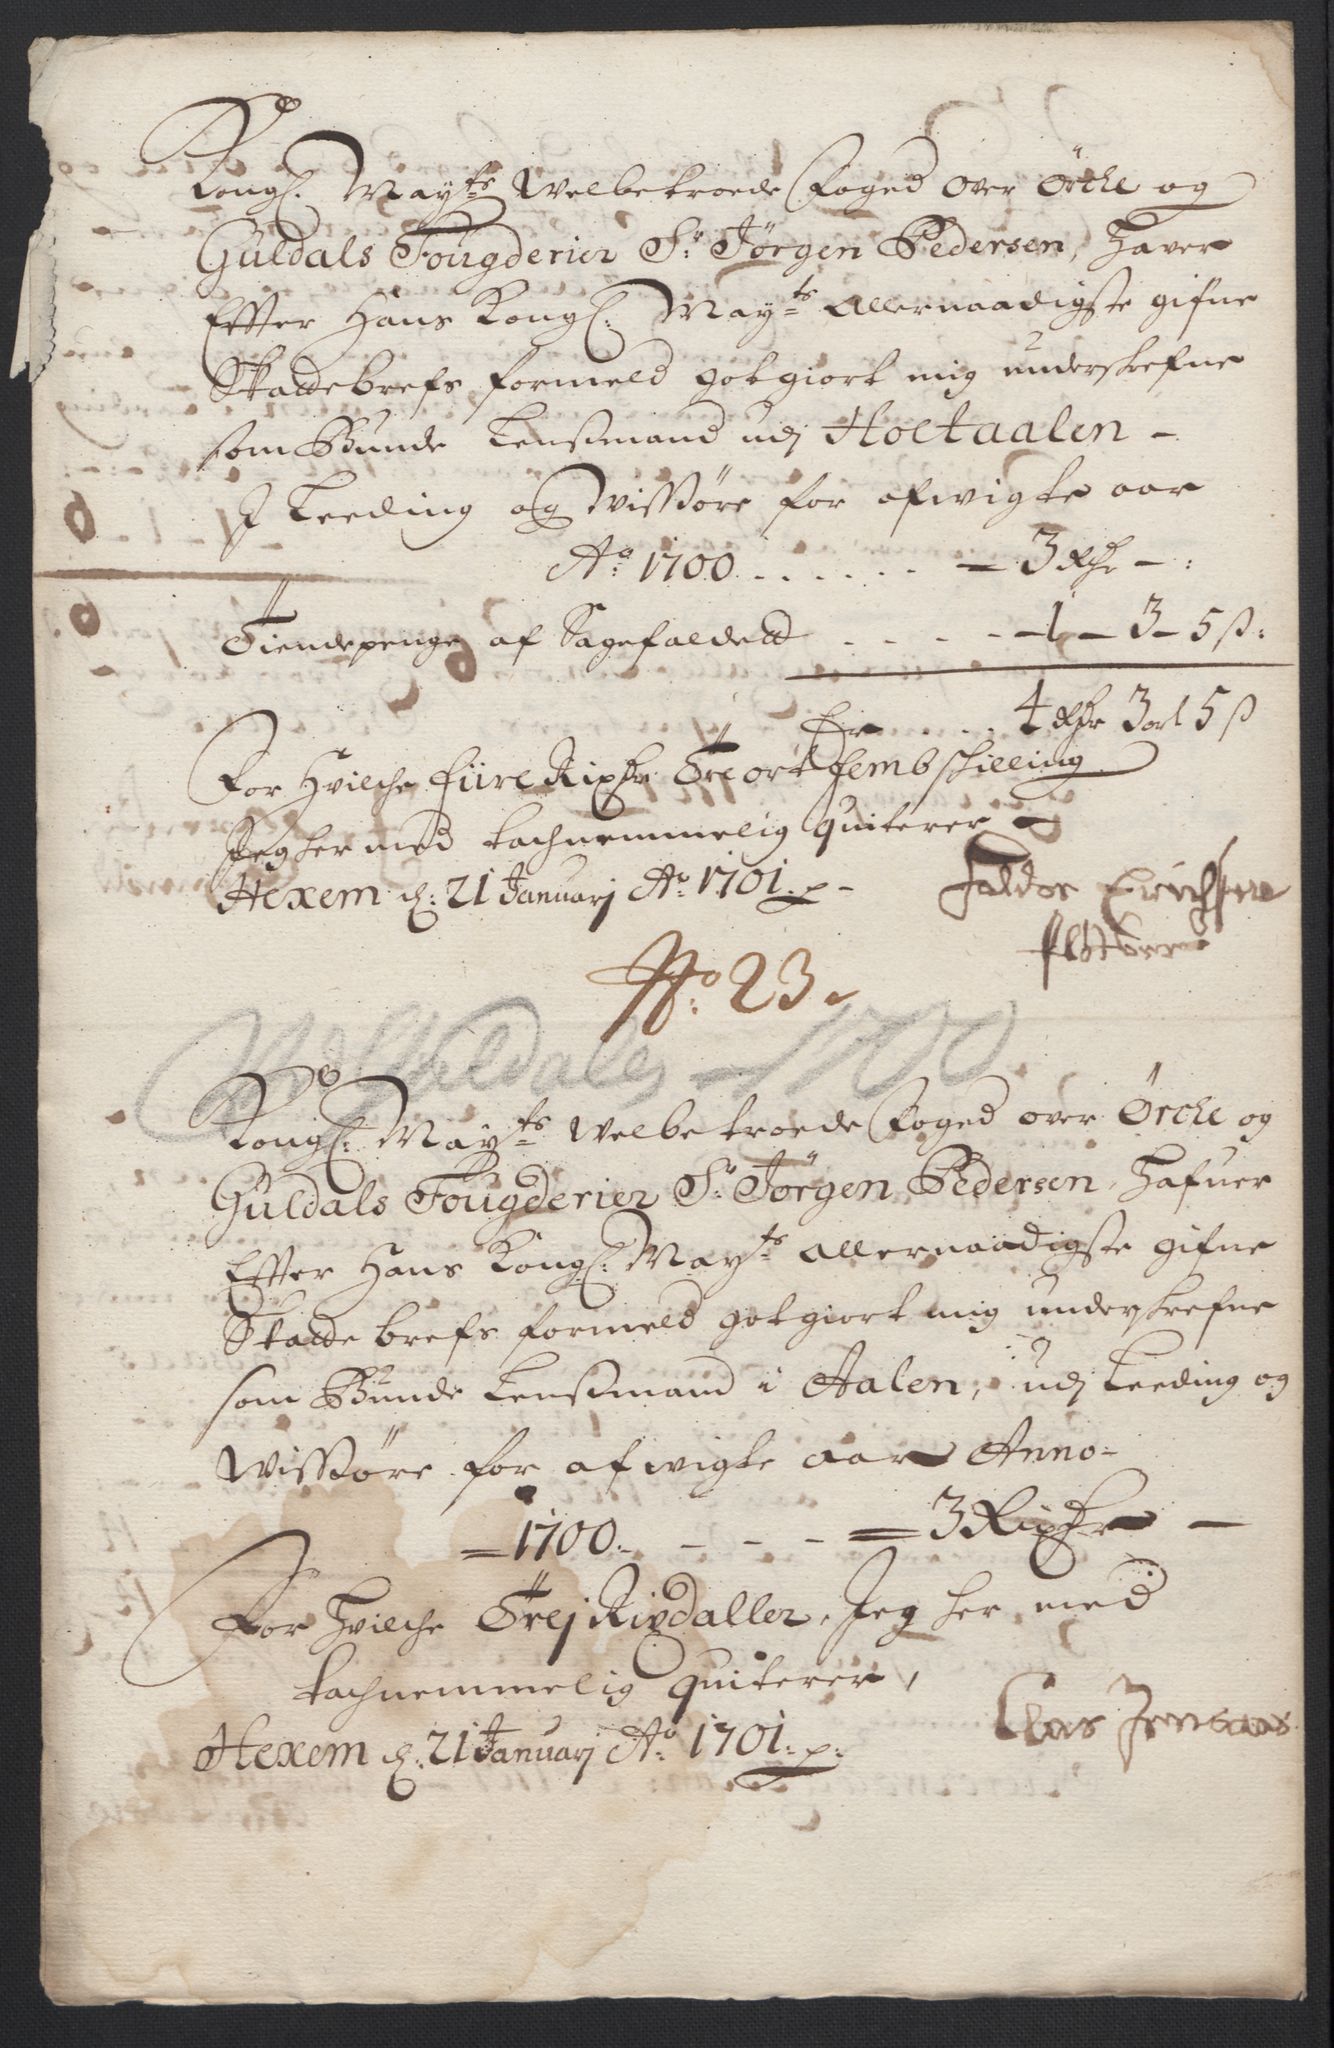 Kongl. Mayts Welbetroede Foged over Örche og
Guldals Fougderier Sr. Jörgen Pedersen, Haver
Effter Hans Kongl. Mayts Allernaadigste gifne
Skattebrefs formeld gotgiort mig underskrefne
som Bunde Lenßmand udj Holtaalen -
I Leeding og Wissöre for afvigte aar
Ao 1700 . . . . . . = 3 Rdr - :
Tiendepenge af Sagefaldet . . . - 1 - 3 - 5 ß:
Er . . . . 4 Rdr 3 ort 5 ß
For Hvilche fiire Rixdr Tre ort femb skilling
Jeg her med tachnemmelig quiterer
Hexem d. 21 Januarj Ao 1701. p -
Haldor Erichsen
No. 23.
Guldals 1700
Kongl. Mayts Welbetroede Foged over Örche og
Guldals Fougderier Sr. Jörgen Pedersen, Hafuer
Effter Hans Kongl. Mayts allernaadigste gifne
Skatte brefs formeld gotgiort mig underskrefne
som Bunde Lenßmand i Aalen, udj Leeding og
Wissöre for afvigte aar Anno
= 1700. - - - = 3 Rixdr -
For Hvilche Trej Rixdaller, Jeg her med
tachnemmelig quiterer,
Hexem d. 21 Januarj Ao 1701. p.
Clas